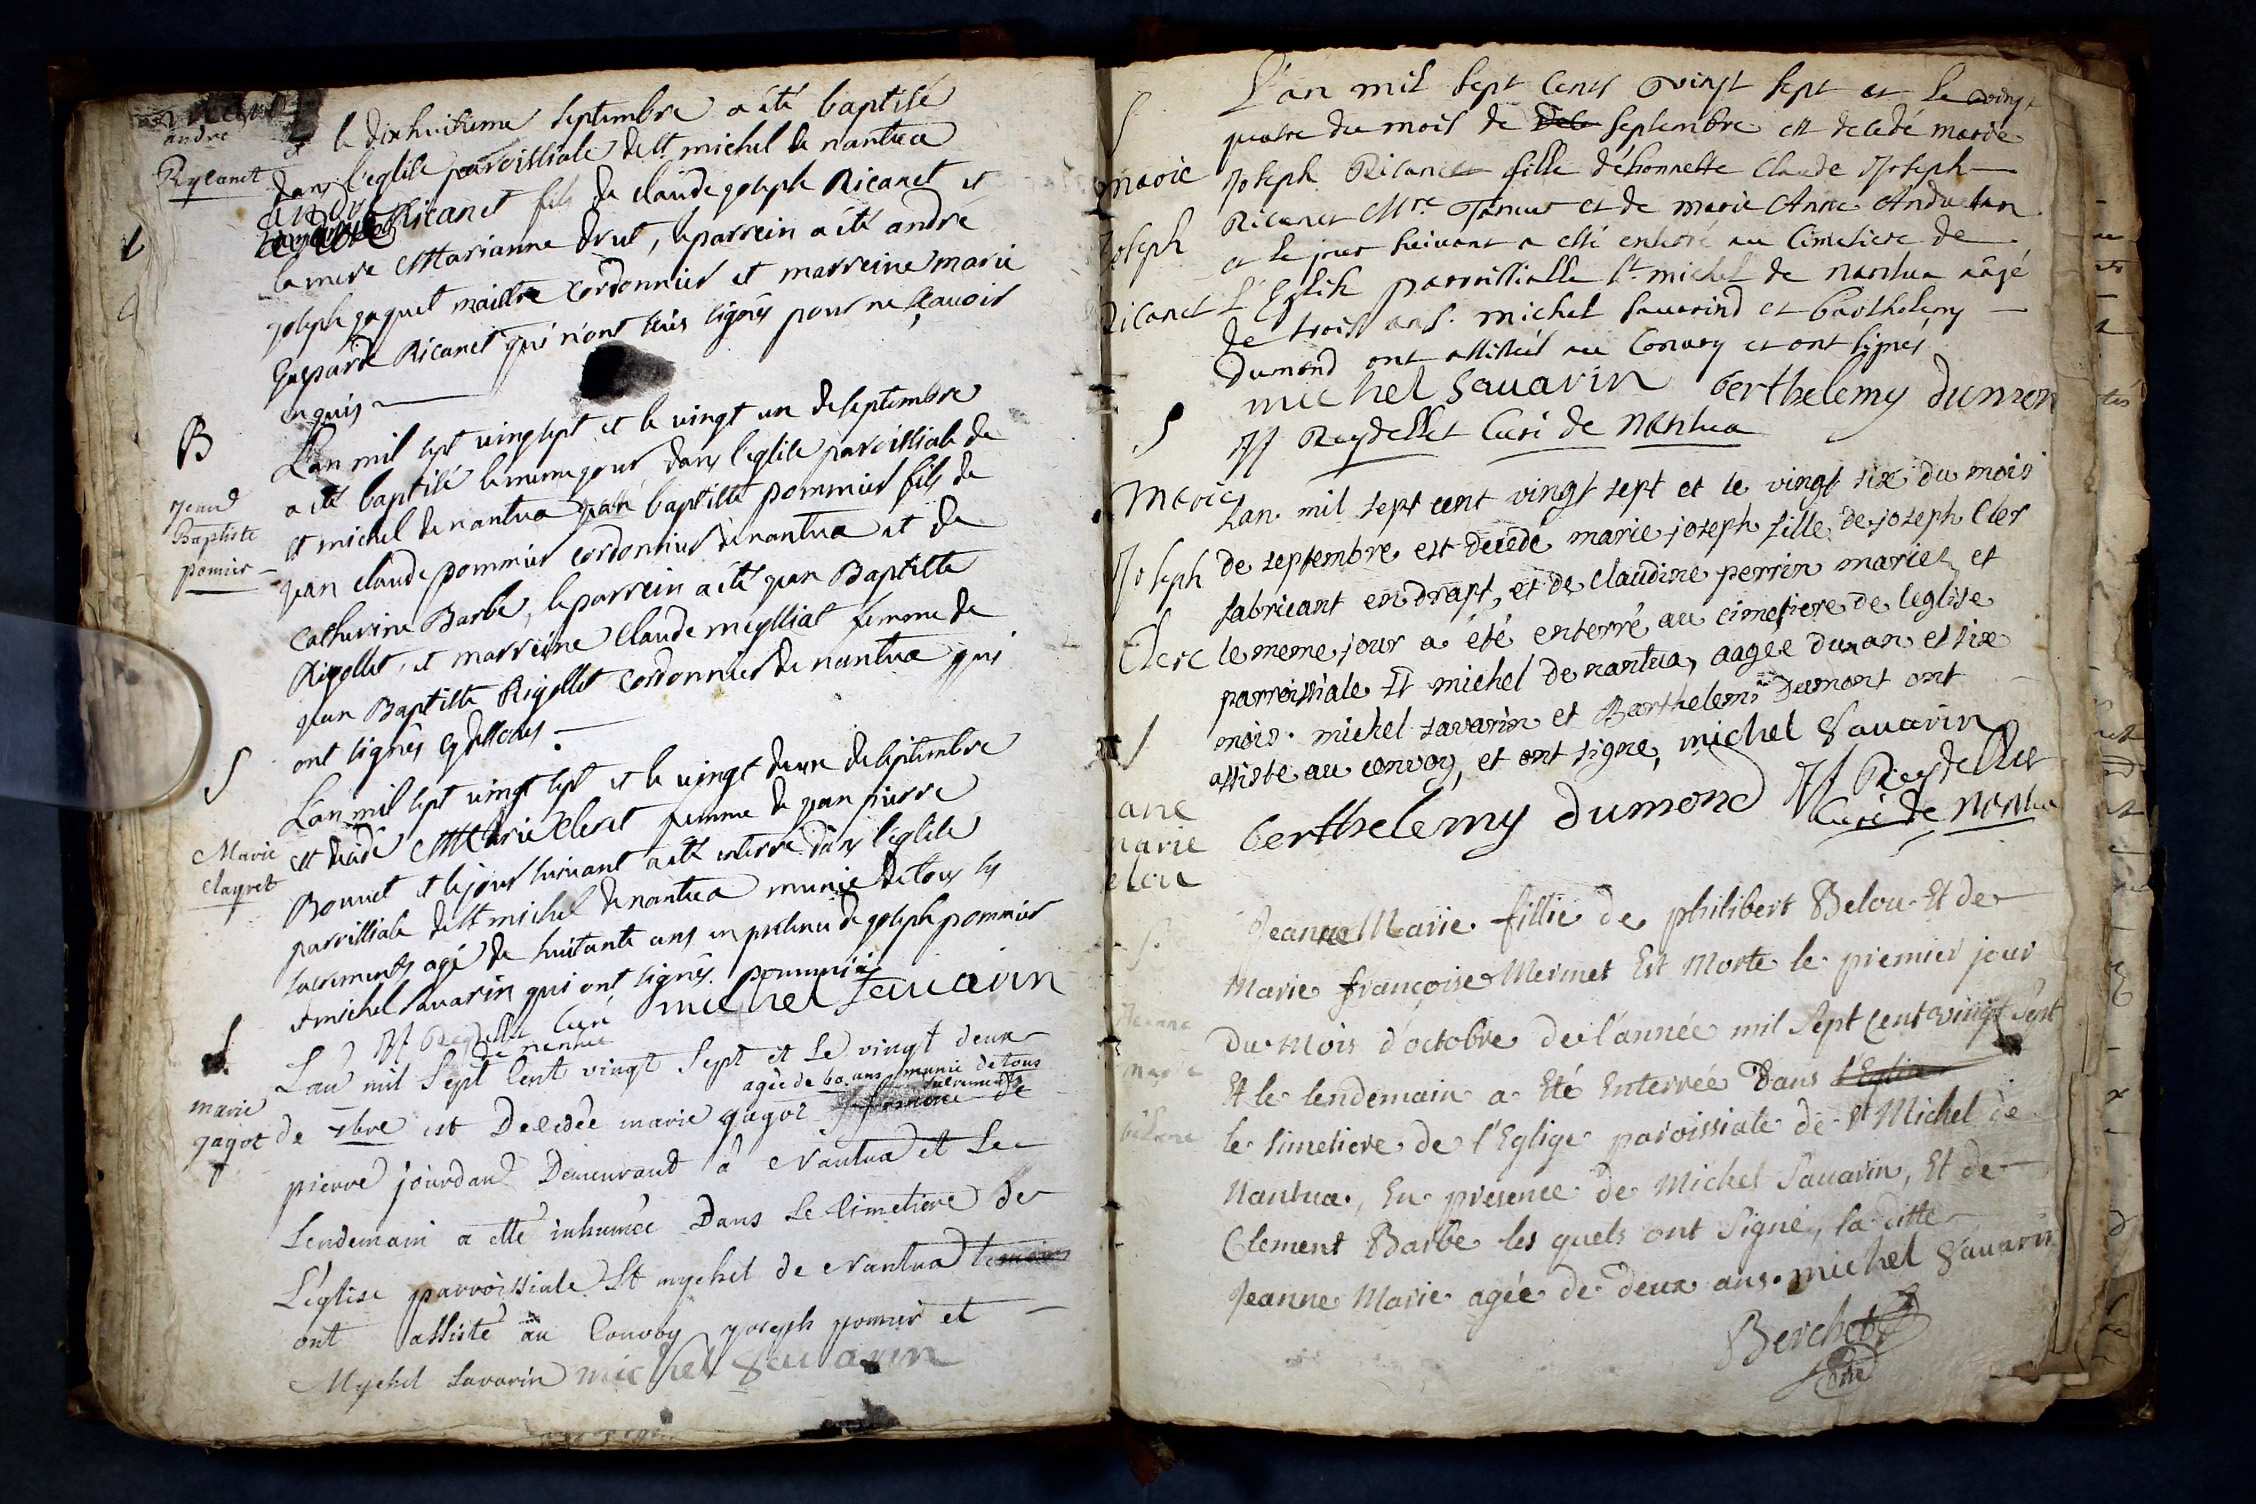 andré
Rycanet
le dixhuitieme septembre a été baptisé
dans l'eglise paroissiale de St michel de nantua
andré Ricanet fils de claude joseph Ricanet et
la mere Marianne drut, le parrein a été andré
joseph jaquet maistre cordonnier et marreine marie
gasparde Ricanet qui n'ont sçus signés pour ne sçavoir
enquis
B
jean
Baptiste
pomier
L'an mil sept vingsept et le vingt un de septembre
a été baptisé le meme jour dans l'eglise paroissiale de
St michel de nantua jean baptiste pommier fils de
jean claude pommier cordonnier de nantua et de
catherine Barbe, le parrein a été jean Baptiste
Rigollet, et marreine claude meylliat femme de
jean Baptiste Rigollet cordonnier de nantua qui
ont signés cydessous
S
Marie
clayret
L'an mil sept vingt sept et le vingt deux de septembre
est decedé Marie Cleret femme de jean pierre
Bonnet et le jour suivant a été enterré dans l'eglise
parroissiale de St michel de nantua munie de tous les
sacrements agé de huitante ans en presence de joseph pommier
et michel savarin qui ont signés. pommier
michel savarin
JJ Reydellet Curé
de nantua
S
marie
jagot
L'an mil sept cent vingt sept et le vingt deux
agée de 60 ans munie de tous
sacrements
de 7bre est decedée marie jagoz femme de
pierre jourdan demeurant a Nantua et le
lendemain a etté inhumée dans le cimetiere de
L'église parroissiale St mychel de Nantua temoins
ont assisté au Convoy joseph pomier et
Mychel savarin michel savarin
S
marie
Joseph
Ricanet
L'an mil sept cents vingt sept et le vingt
quatre du mois de septembre est decedé marie
Joseph Ricanet fille d'honnette Claude Joseph
Ricanet Mre Taneur et de marie Anne Andu
et le jour suivant a esté enterré au Cimetiere de
L'Eglise parroissialle St michel de Nantua aagé
de trois ans. michel sauarind et barthelemy
Dumond ont assistés au Convoy et ont signés
michel sauarin berthelemy dumon
JJ Reydellet Curé de Nantua
S
Marie
Joseph
Clerc
Lan mil sept cent vingt sept et le vingt six du mois
de septembre est decedé marie joseph fille de joseph Cler
fabricant en drapt, et de claudine perrin mariez et
le meme jour a été enterré au cimetiere de leglise
parroissiale St michel de nantua, aagée dun an et six
mois. michel savarin et Barthelemi Dumont ont
assisté au convoy, et ont signe, michel sauarin
berthelemy dumond JJ Reydellet
Curé de Nantua
S
ane
marie
elou
Jeanne Marie fillie de philibert Belou Et de
Marie françoise Mermet Est Morte le premier jour
Du Mois d'octobre de l'année mil sept cent vingt sept
Et le lendemain a Eté Enterrée Dans l'Eglise
le simetiere de l'Eglise paroissiale de St Michel de
Nantua, En presence de Michel Sauarin, Et de
Clement Barbe les quels ont signé, la ditte
Jeanne Marie agée de deux ans. michel sauarin
Berchet